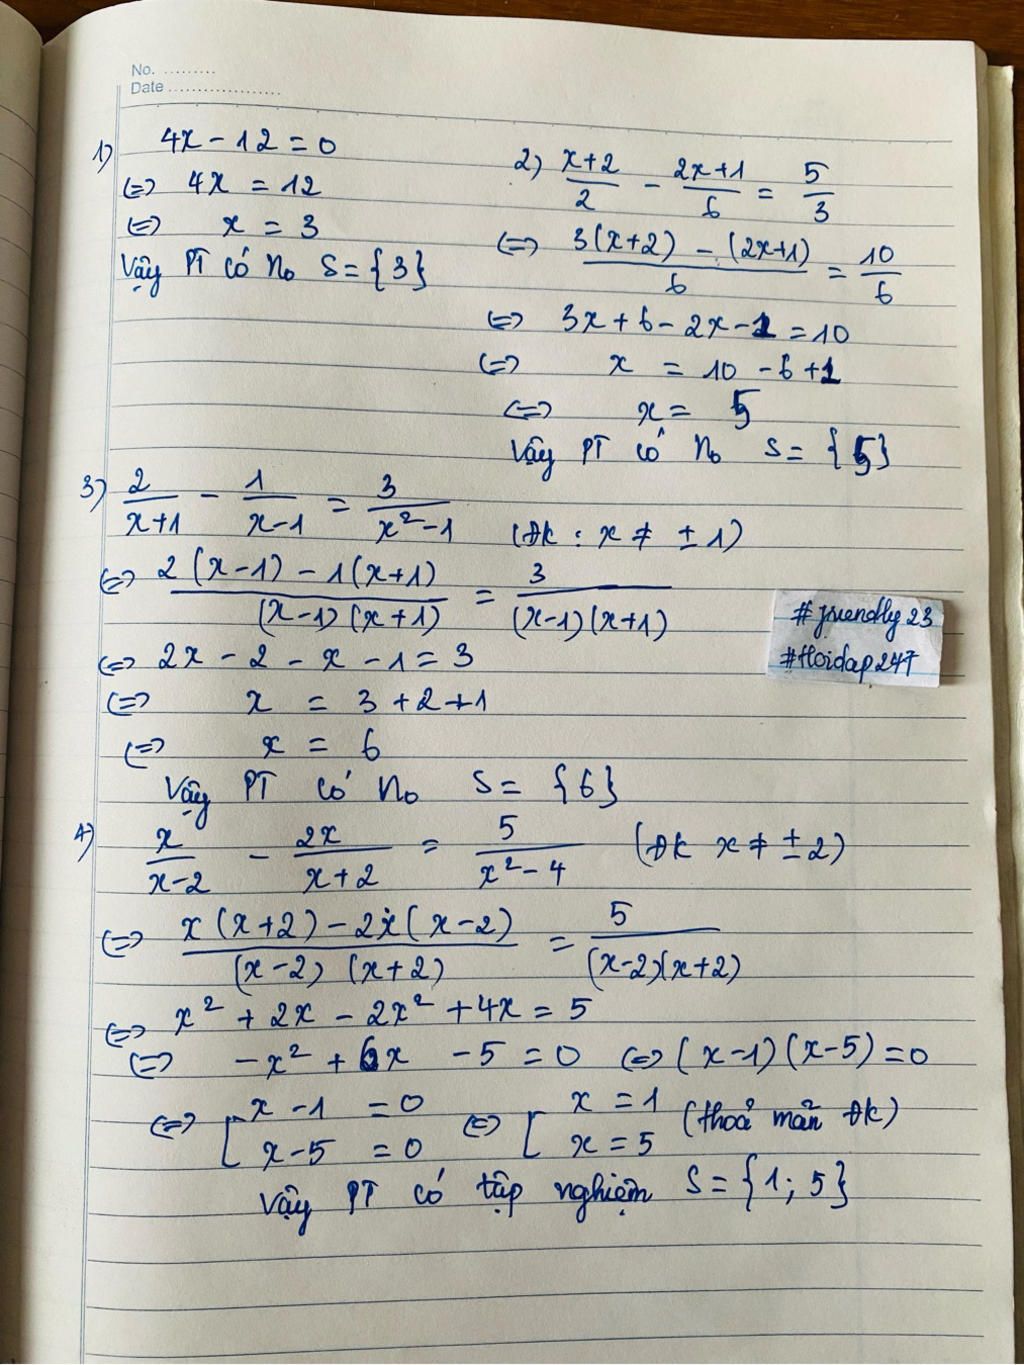 No. .........
Date ...................
1) 4x - 12 = 0
<=> 4x = 12
<=> x = 3
Vậy PT có No S = {3}
2) (x+2)/2 - (2x+1)/6 = 5/3
<=> (3(x+2) - (2x+1))/6 = 10/6
<=> 3x + 6 - 2x - 1 = 10
<=> x = 10 - 6 + 1
<=> x = 5
Vậy PT có No S = {5}
3) 2/(x+1) - 1/(x-1) = 3/(x²-1) (Đk : x ≠ ±1)
<=> (2(x-1) - 1(x+1))/((x-1)(x+1)) = 3/((x-1)(x+1))
<=> 2x - 2 - x - 1 = 3
<=> x = 3 + 2 + 1
<=> x = 6
Vậy PT có No S = {6}
#friendly23
#Hoidap247
4) x/(x-2) - 2x/(x+2) = 5/(x²-4) (Đk x ≠ ±2)
<=> (x(x+2) - 2x(x-2))/((x-2)(x+2)) = 5/((x-2)(x+2))
<=> x² + 2x - 2x² + 4x = 5
<=> -x² + 6x - 5 = 0 <=> (x-1)(x-5) = 0
<=> [ x - 1 = 0 <=> [ x = 1 (thoả mãn Đk)
x - 5 = 0 x = 5
Vậy PT có tập nghiệm S = {1; 5}